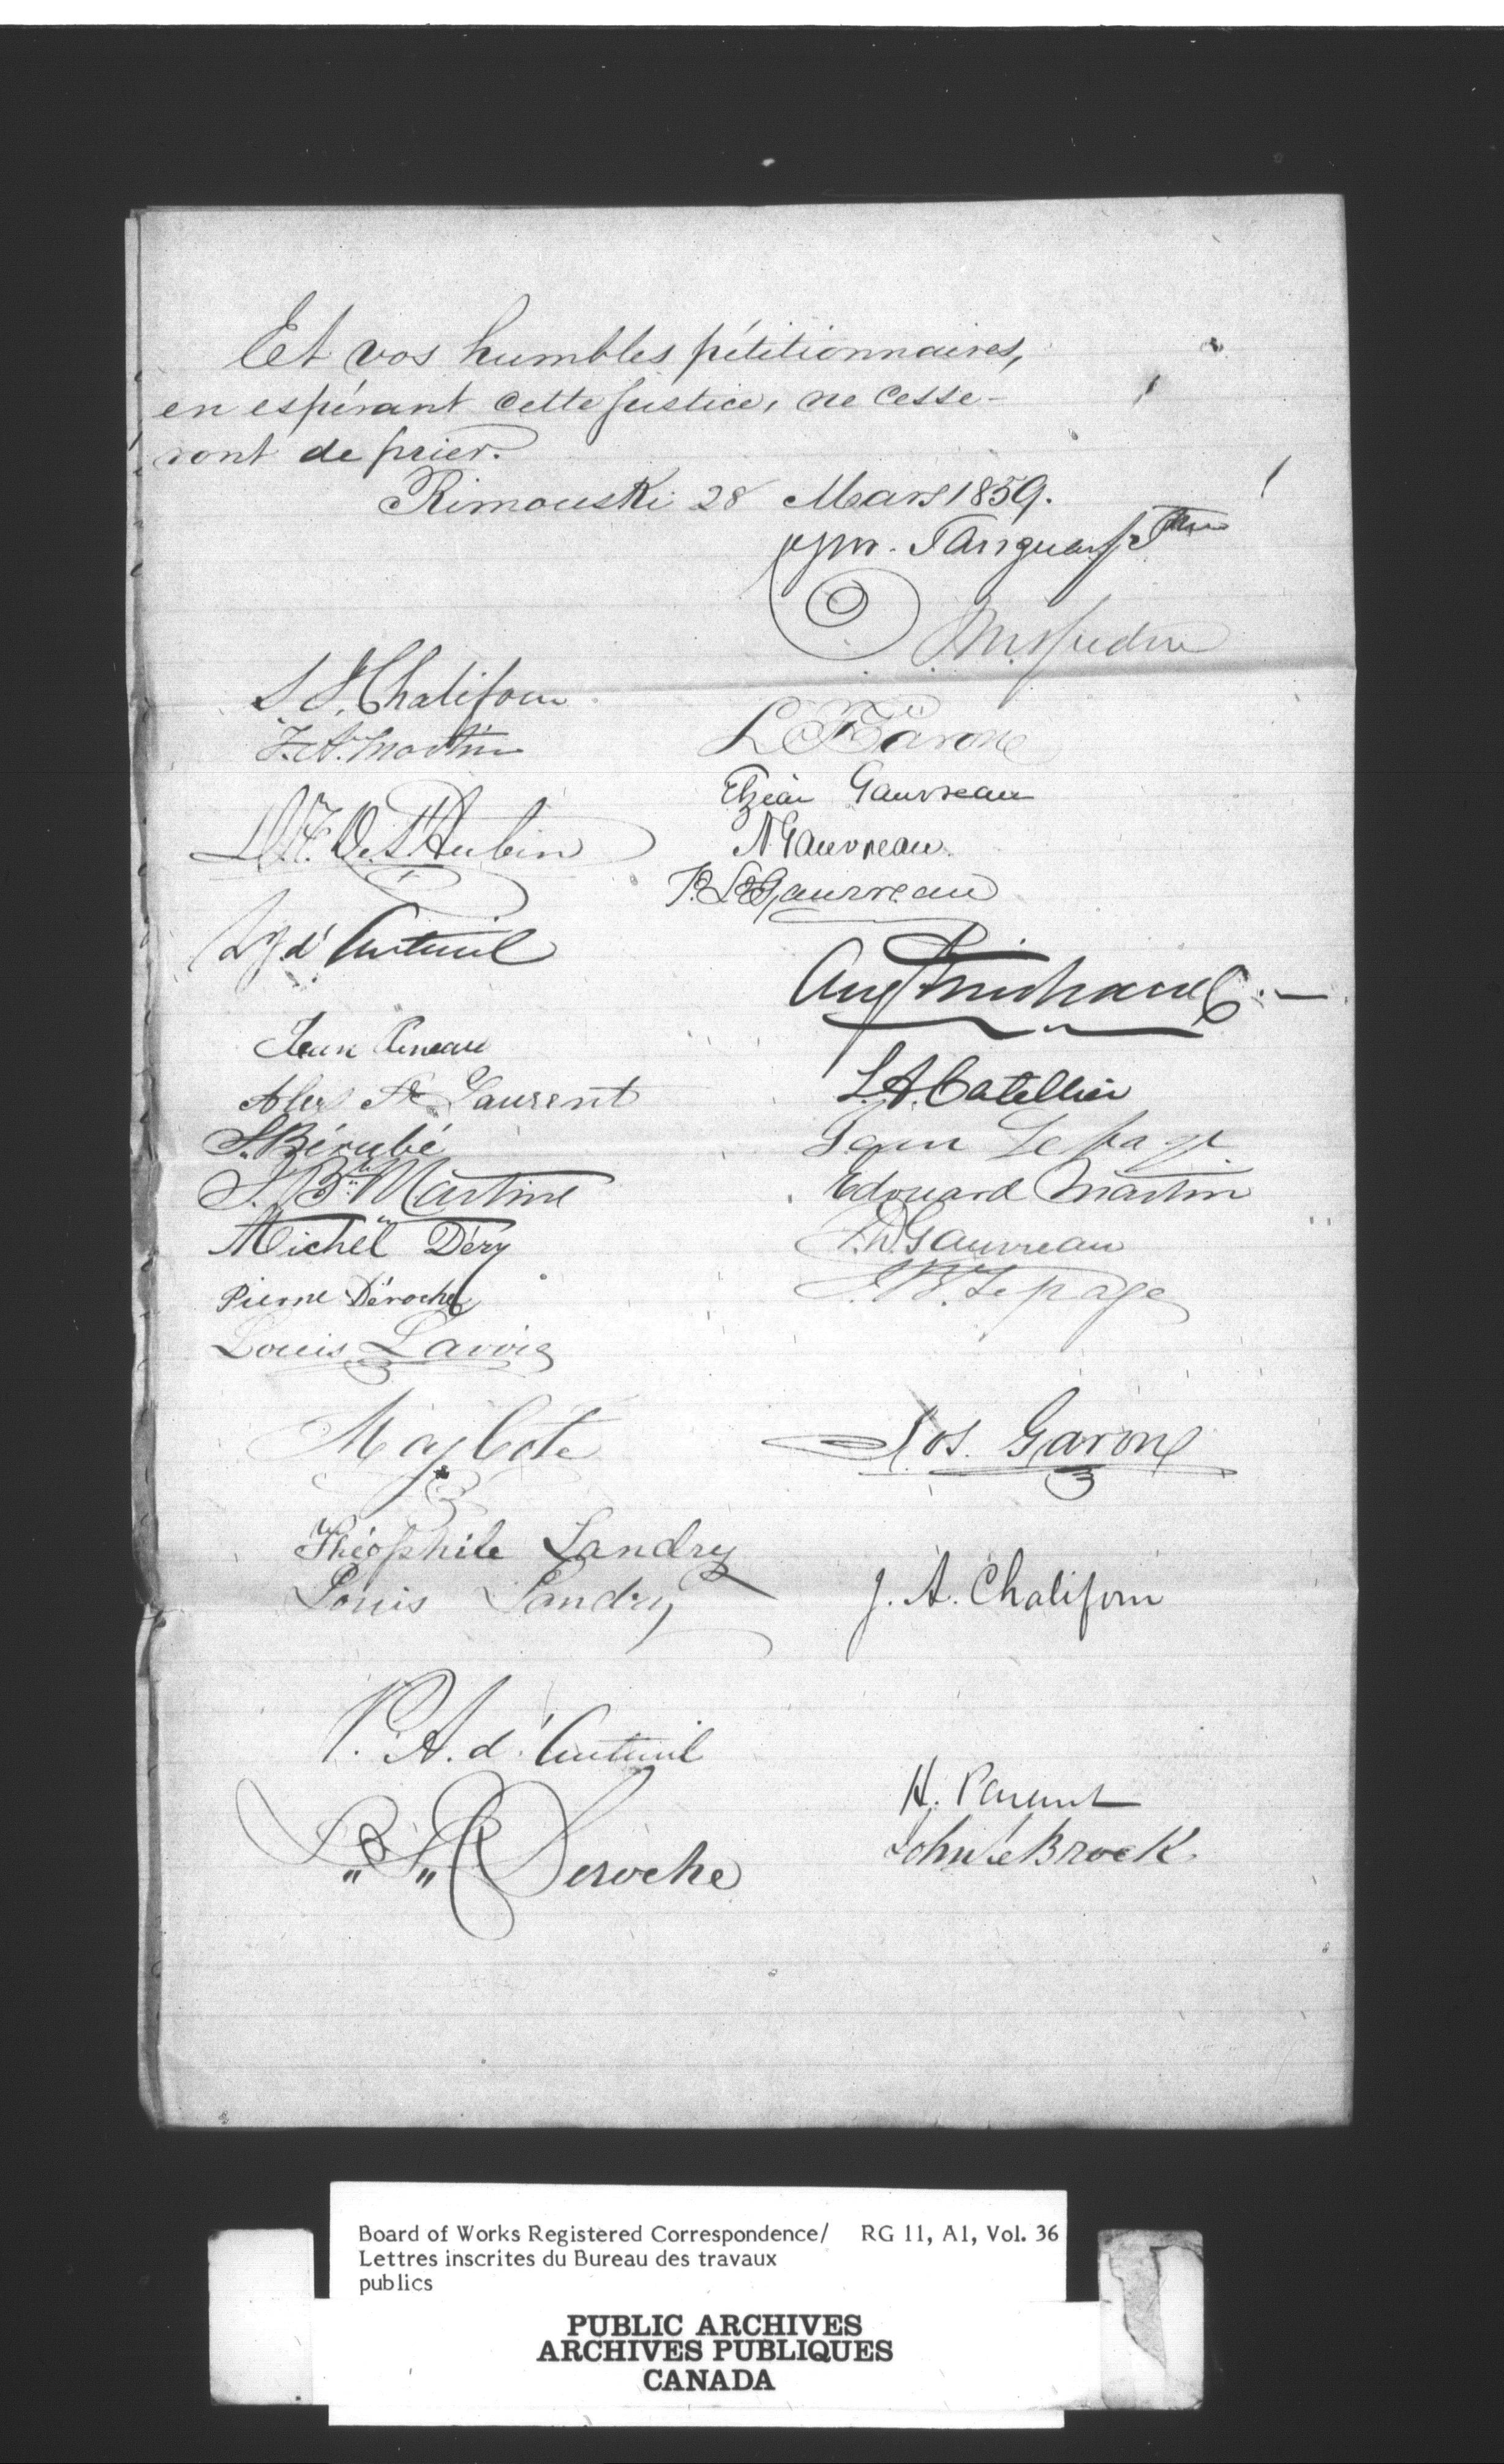 Et vos humbles pétitionnaires,
en espérant cette justice, ne cesse-
ront de prier.
Rimouski 28 Mars 1859.
Cyp. Tanguay Ptre
J. M. Hudon
S S. Chalifour
F. A. Martin
L. F. Garon
Elzéar Gauvreau
St Aubin
N. Gauvreau
P. L. Gauvreau
d'Auteuil
Aug Michaud
Jean Pineau
Alex St Laurent
L. A. Catellier
S. Bérubé
Jean Lepage
J. Bte Martin
Edouard Martin
Michel Déry
P. N. Gauvreau
Pierre Déroche
J. B. Lepage
Louis Lavoie
Maj Coté
Jos. Garon
Théophile Landry
Louis Landry
J. A. Chalifour
P. A. d'Auteuil
H. Parent
Deroche
John Le Brock
Board of Works Registered Correspondence/ RG 11, A1, Vol. 36
Lettres inscrites du Bureau des travaux
publics
PUBLIC ARCHIVES
ARCHIVES PUBLIQUES
CANADA